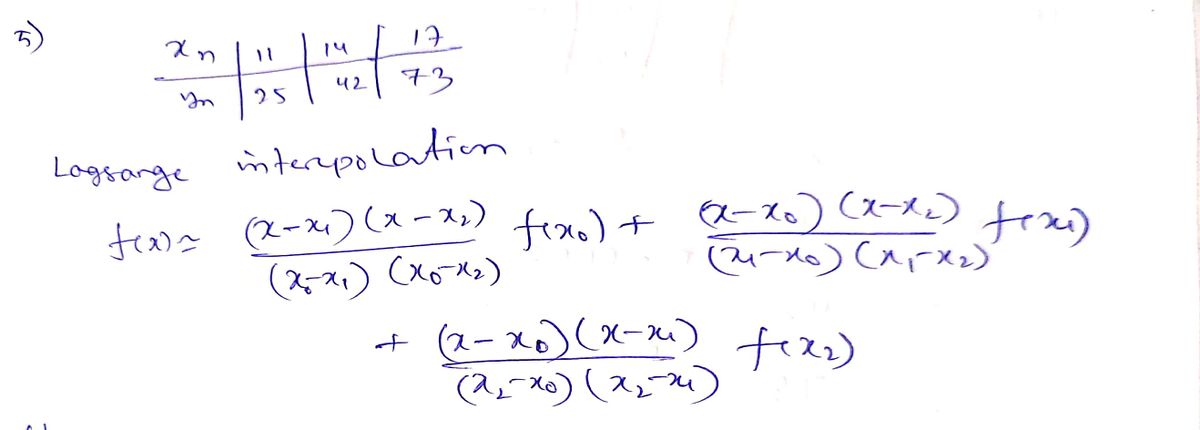 5)
xn | 11 | 14 | 17
yn | 25 | 42 | 73
Lagsange interpolation
f(x) ≃ (x-x₁)(x-x₂) / (x₀-x₁)(x₀-x₂) f(x₀) + (x-x₀)(x-x₂) / (x₁-x₀)(x₁-x₂) f(x₁)
+ (x-x₀)(x-x₁) / (x₂-x₀)(x₂-x₁) f(x₂)